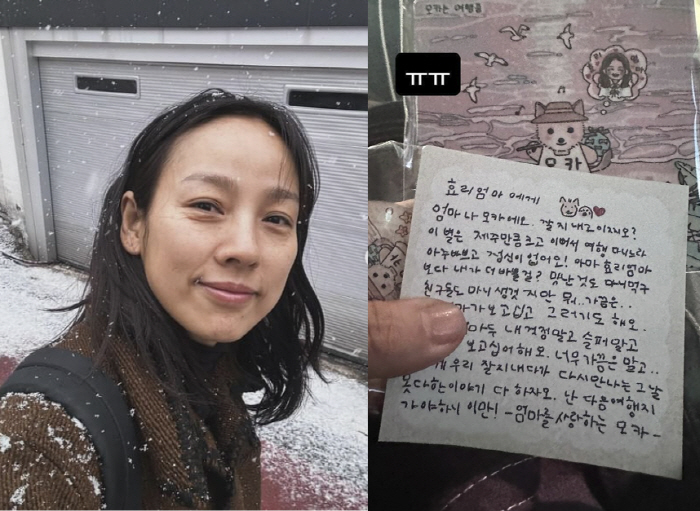 모카는 여행중
ㅠㅠ
모카
효리엄마에게
엄마 나 모카에요. 잘 지내고 이찌요?
이 별은 제주만큼 크고 이뻐서 여행 다니느라
아주 바쁘고 정신이 없어요! 아마 효리엄마
보다 내가 더 바쁠걸? 맛난것도 마니먹구
친구들도 마니 생겻지만 뭐..가끔은..
보고십고 그러기도 해요.
내 걱정말고 슬퍼말고
보고십어해요. 너무가끔은 말고..
우리 잘지내다가 다시만나는 그날
못다한 이야기 다 하자요. 난 다음여행지
가야하니 이만! -엄마를 사랑하는 모카-